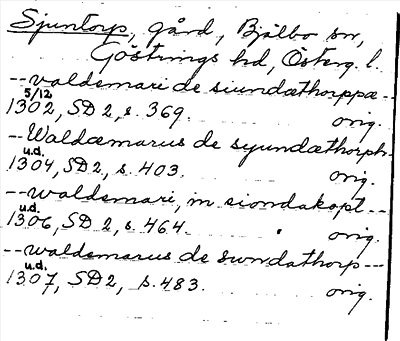 Sjuntorp, gård, Bjälbo sn,
Göstrings hd, Österg. l.
--waldemari de siundæthorppæ--
5/12
1302, SD 2, s. 369. orig.
--Waldæmarus de syundæthorph
u.d.
1304, SD 2, s. 403. orig.
--waldemari, in siondakopt---
u.d.
1306, SD 2, s. 464. orig.
--waldemarus de swndathorp---
u.d.
1307, SD 2, s. 483. orig.